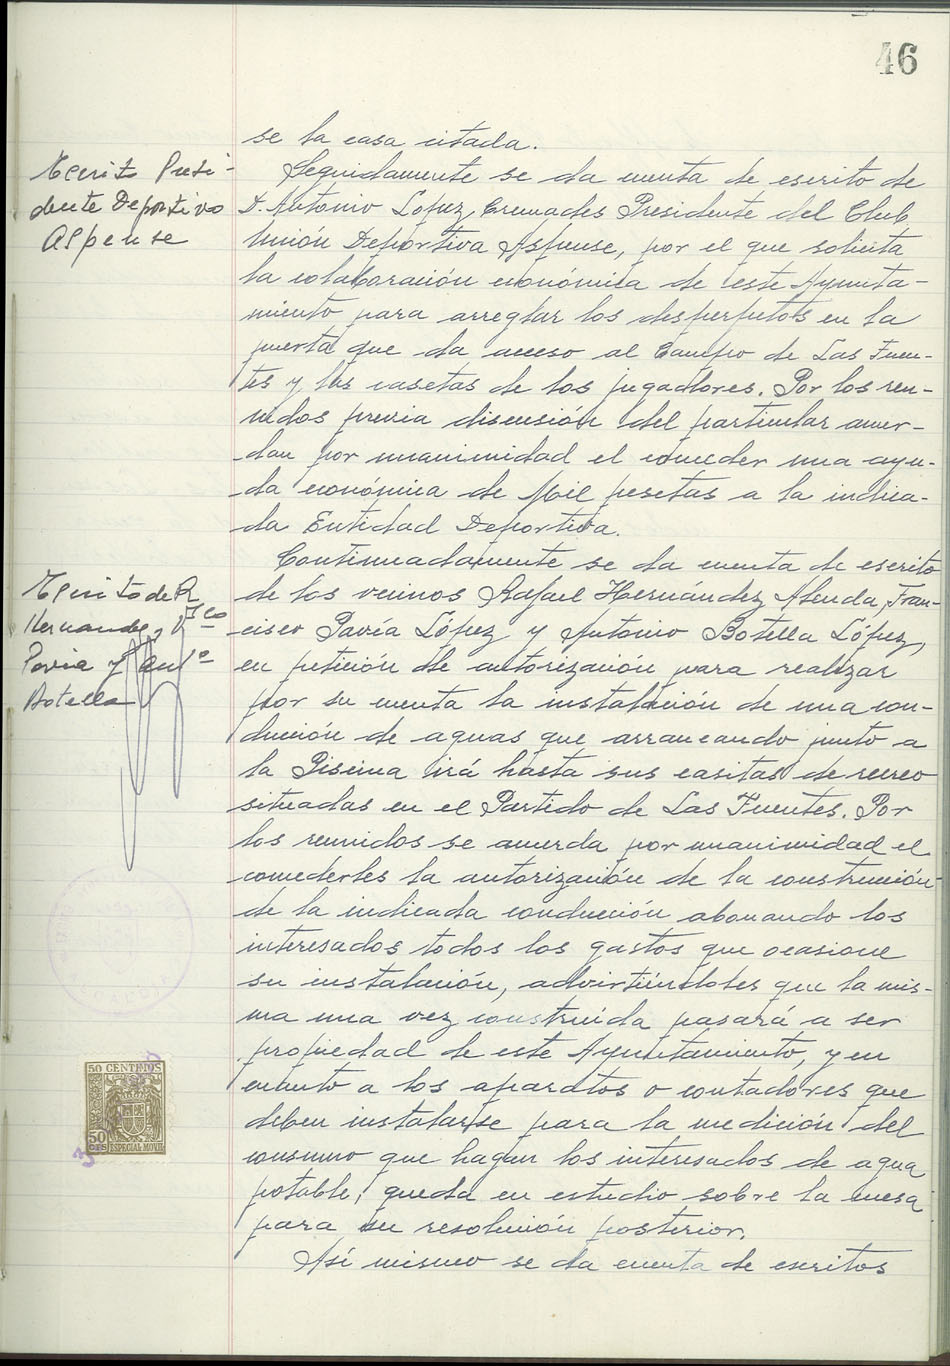 46
se la casa citada.
Escrito Presi-
dente Deportivo
Aspense
Seguidamente se da cuenta de escrito de
D. Antonio López Cremades Presidente del Club
Unión Deportiva Aspense, por el que solicita
la colaboración económica de este Ayunta-
miento para arreglar los desperfectos en la
puerta que da acceso al Campo de Las Fuen-
tes y las casetas de los jugadores. Por los reu-
nidos previa discusión del particular acuer-
dan por unanimidad el conceder una ayu-
da económica de Mil pesetas a la indica-
da Entidad Deportiva.
Escrito de R.
Hernandez, Fco
Pavia y Antº
Botella
Continuadamente se da cuenta de escrito
de los vecinos Rafael Hernández Abenda, Fran-
cisco Pavía López y Antonio Botella López,
en petición de autorización para realizar
por su cuenta la instalación de una con-
ducción de aguas que arrancando junto a
la Piscina irá hasta sus casitas de recreo
situadas en el Partido de Las Fuentes. Por
los reunidos se acuerda por unanimidad el
concederles la autorización de la construcción
de la indicada conducción abonando los
interesados todos los gastos que ocasione
su instalación, advirtiéndoles que la mis-
ma una vez construida pasará a ser
propiedad de este Ayuntamiento, y en
cuanto a los aparatos o contadores que
deben instalarse para la medición del
consumo que hagan los interesados de agua
potable, queda en estudio sobre la mesa
para su resolución posterior.
Así mismo se da cuenta de escritos
50 CENTIMOS
50
CTS
ESPECIAL MOVIL